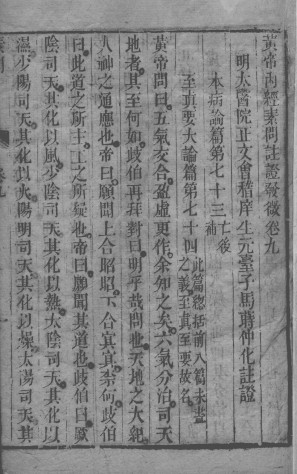 黃帝內經素問註證發微卷九
明太醫院正文會稽庠生元臺子馬蒔仲化註證
本病論篇第七十三亡後補
至真要大論篇第七十四此篇總括前八篇未盡之義至真至要故名
黃帝問曰五氣交合盈虛更作余知之矣六氣分治司天
地者其至何如歧伯再拜對曰明乎哉問也天地之大紀
人神之通應也帝曰願聞上合昭昭下合冥冥柰何歧伯
曰此道之所主工之所疑也帝曰願聞其道也歧伯曰厥
陰司天其化以風少陰司天其化以熱太陰司天其化以
濕少陽司天其化以火陽明司天其化以燥太陽司天其
卷九